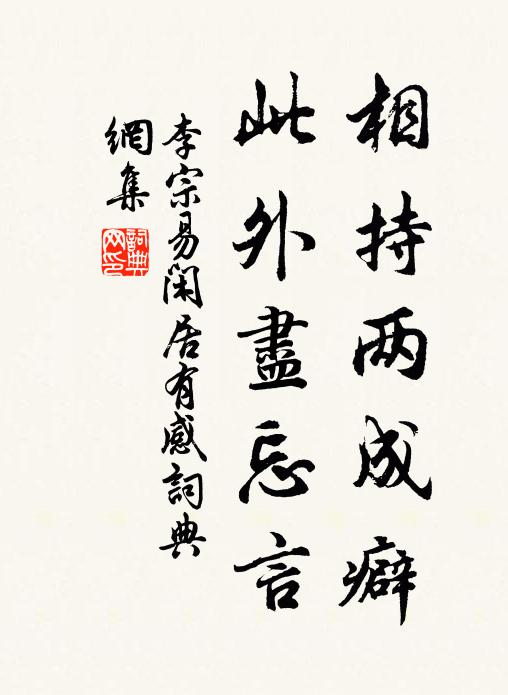 相持两成癖
此外盡忘言
李宗易閑居有感詞典
網集
詞典
网印